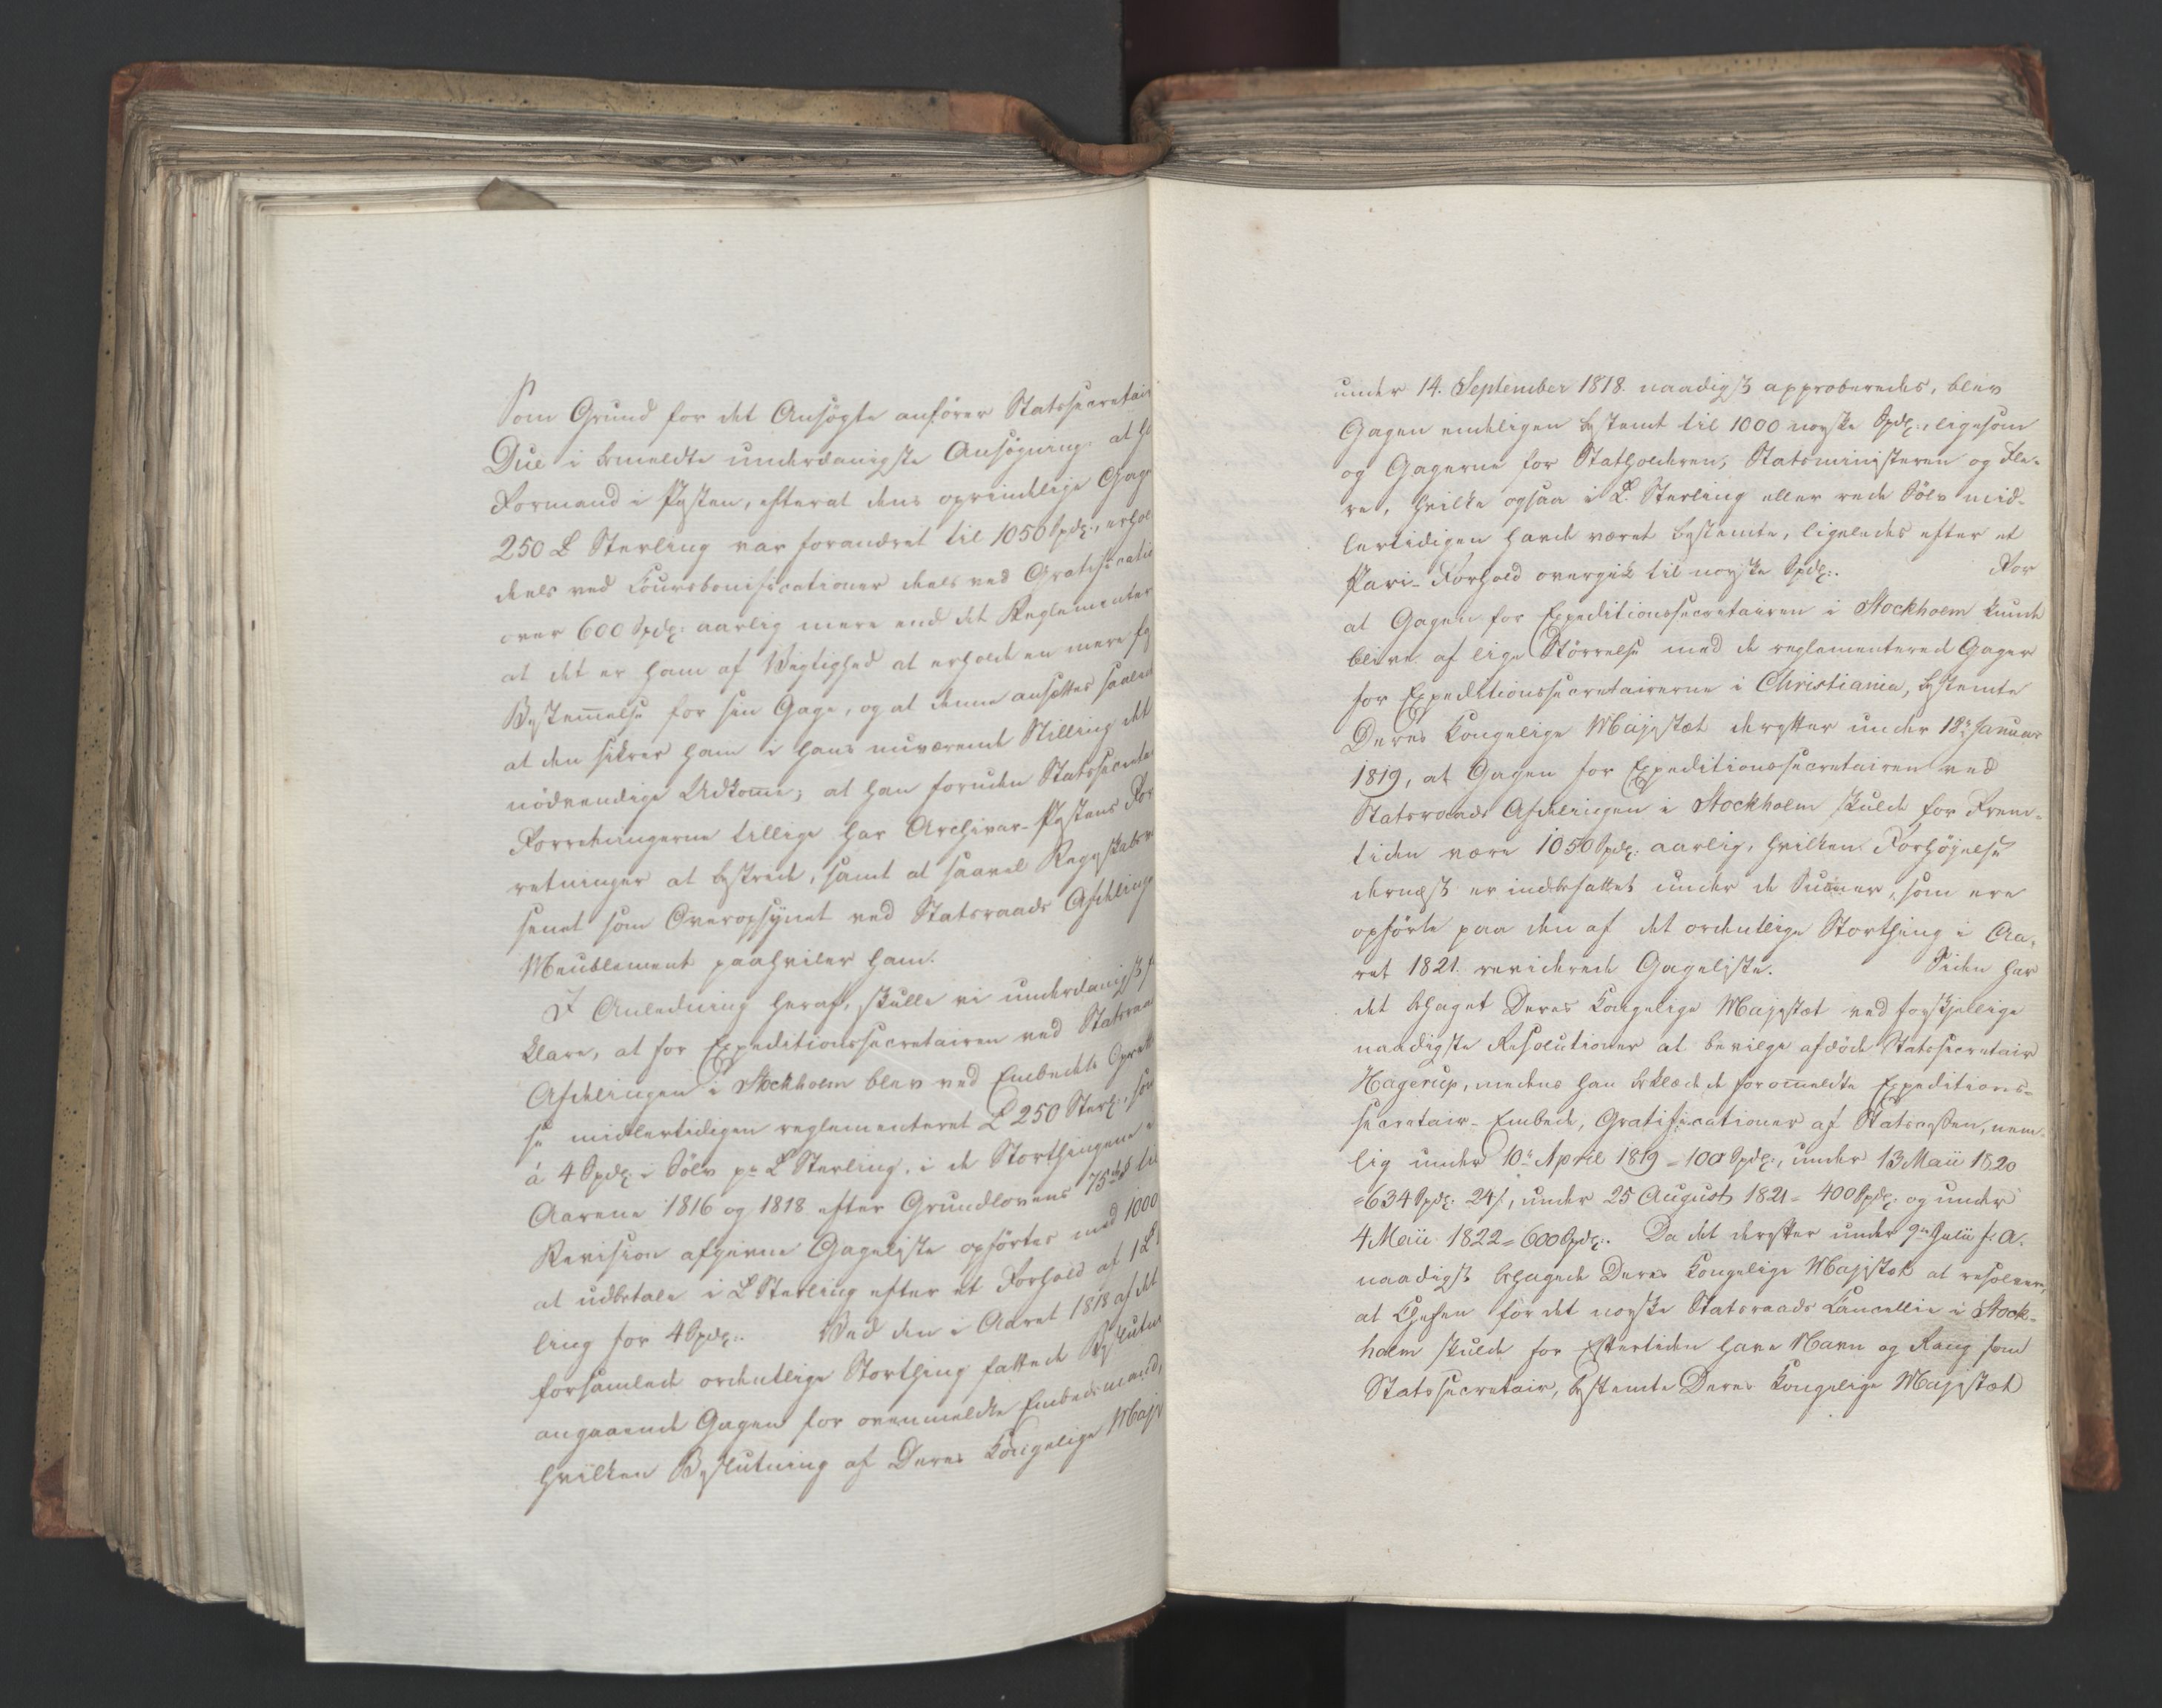 Som Grund for det Ansøgte anfører Statssecretair
Due i bemeldte underdanigste Ansøgning: at h
Formand i Posten, efterat dens oprindelige Gage
250 £ Sterling var forandret til 1050 Spdr:, erhol
deels ved Coursbonificationer deels ved Gratificatio
over 600 Spdr: aarlig mere end det Reglementer
at det er ham af Vigtighed at erholde en mere
Bestem̅else for sin Gage, og at denne ansættes saaled
at den sikrer ham i hans nuværende Stilling det
nødvendige Udkom̅e; at han foruden Statssecretai
Forretningerne tillige har Archivar-Postens For
retninger at bestride, samt at saavel Regnskabsv
senet som Overopsynet ved Statsraads Afdelinge
Meublement paahviler ham.
I Anledning heraf, skulle vi underdanigst
klare, at for Expeditionssecretairen ved Statsraa
Afdelingen i Stockholm blev ved Embedets Opret
se midlertidigen reglementeret £ 250 Sterl:, so
à 4 Spdr: i Sølv pr £ Sterling, i de Storthingene i
Aarene 1816 og 1818 efter Grundlovens 75de § til
Revision afgivne Gageliste opførtes med 1000
at udbetale i £ Sterling efter et Forhold af 1 £
ling for 4 Spdr:. Ved den i Aaret 1818 af det
forsamlede ordentlige Storthing fattede Beslutni
angaaende Gagen for ovenmeldte Embedsmand,
hvilken Beslutning af Deres Kongelige Maje
under 14. September 1818. naadigst approberedes, blev
Gagen endeligen bestemt til 1000 norske Spdr:, ligesom
og Gagerne for Statholderen, Statsministeren og Fle-
re, hvilke ogsaa i £. Sterling eller rede Sølv mid-
lertidigen havde været bestemte, ligeledes efter et
Pari-Forhold overgik til norske Spdr:. For
at Gagen for Expeditionssecretairen i Stockholm kunde
blive af lige Størrelse med de reglementerede Gager
for Expeditionssecretairerne i Christiania, bestemte
Deres Kongelige Majestæt derefter under 18de Januar
1819, at Gagen for Expeditionssecretairen ved
Statsraads Afdelingen i Stockholm skulde for Frem-
tiden være 1050 Spdr: aarlig, hvilken Forhøjelse
dernæst er indbefattet under de Sum̅er, som ere
opførte paa den af det ordentlige Storthing i Aa-
ret 1821. reviderede Gageliste. Siden har
det behaget Deres Kongelige Majestæt ved forskjellige
naadigste Resolutioner at bevilge afdøde Statssecretair
Hagerup, medens han beklædede forom̅eldte Expeditions-
secretair-Embede, Gratificationer af Statscassen, nem-
lig under 10de April 1819 = 100 Spdr:, under 13 Maii 1820
= 634 Spdr: 24 /, under 25 August 1821 = 400 Spdr: og under
4 Maii 1822 = 600 Spdr:. Da det derefter under 9de Julii s: A.
naadigst behagede Deres Kongelige Majestæt at resolvere,
at Chefen for det norske Statsraads Cancellie i Stock-
holm skulde for Eftertiden have Navn og Rang som
Statssecretair, bestemte Deres Kongelige Majestæt